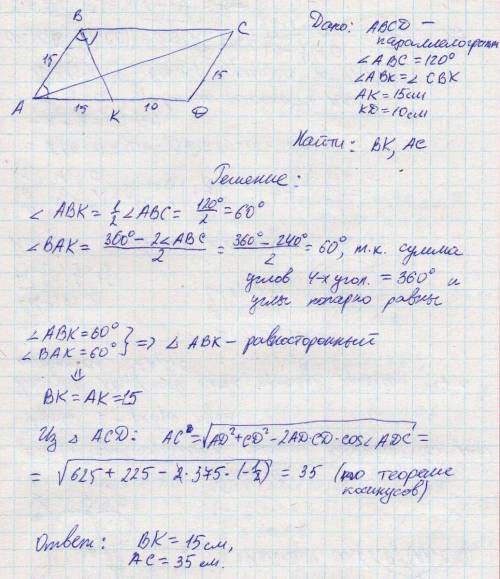 B
C
15
15
A
15
K
10
D
Дано: ABCD –
параллелограмм
∠ABC = 120°
∠ABK = ∠CBK
AK = 15 см
KD = 10 см
Найти: BK, AC
Решение:
∠ABK = 1/2 ∠ABC = 120°/2 = 60°
∠BAK = (360° – 2∠ABC)/2 = (360° – 240°)/2 = 60°, т.к. сумма
углов 4-х угол. = 360° и
углы попарно равны
∠ABK = 60°
∠BAK = 60° } => △ABK – равносторонный
⇓
BK = AK = 15
Из △ACD: AC = √(AD² + CD² – 2AD·CD·cos∠ADC) =
= √(625 + 225 – 2·375·(–1/2)) = 35 (по теореме
косинусов)
Ответ: BK = 15 см,
AC = 35 см.